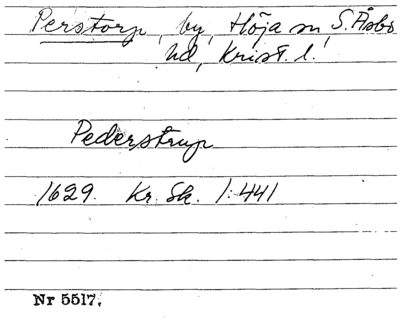 Perstorp, by, Höja sn, S. Åsbo
hd, Krist. l.
Pederstrup
1629. Kr. Sk. 1:441
Nr 5517.